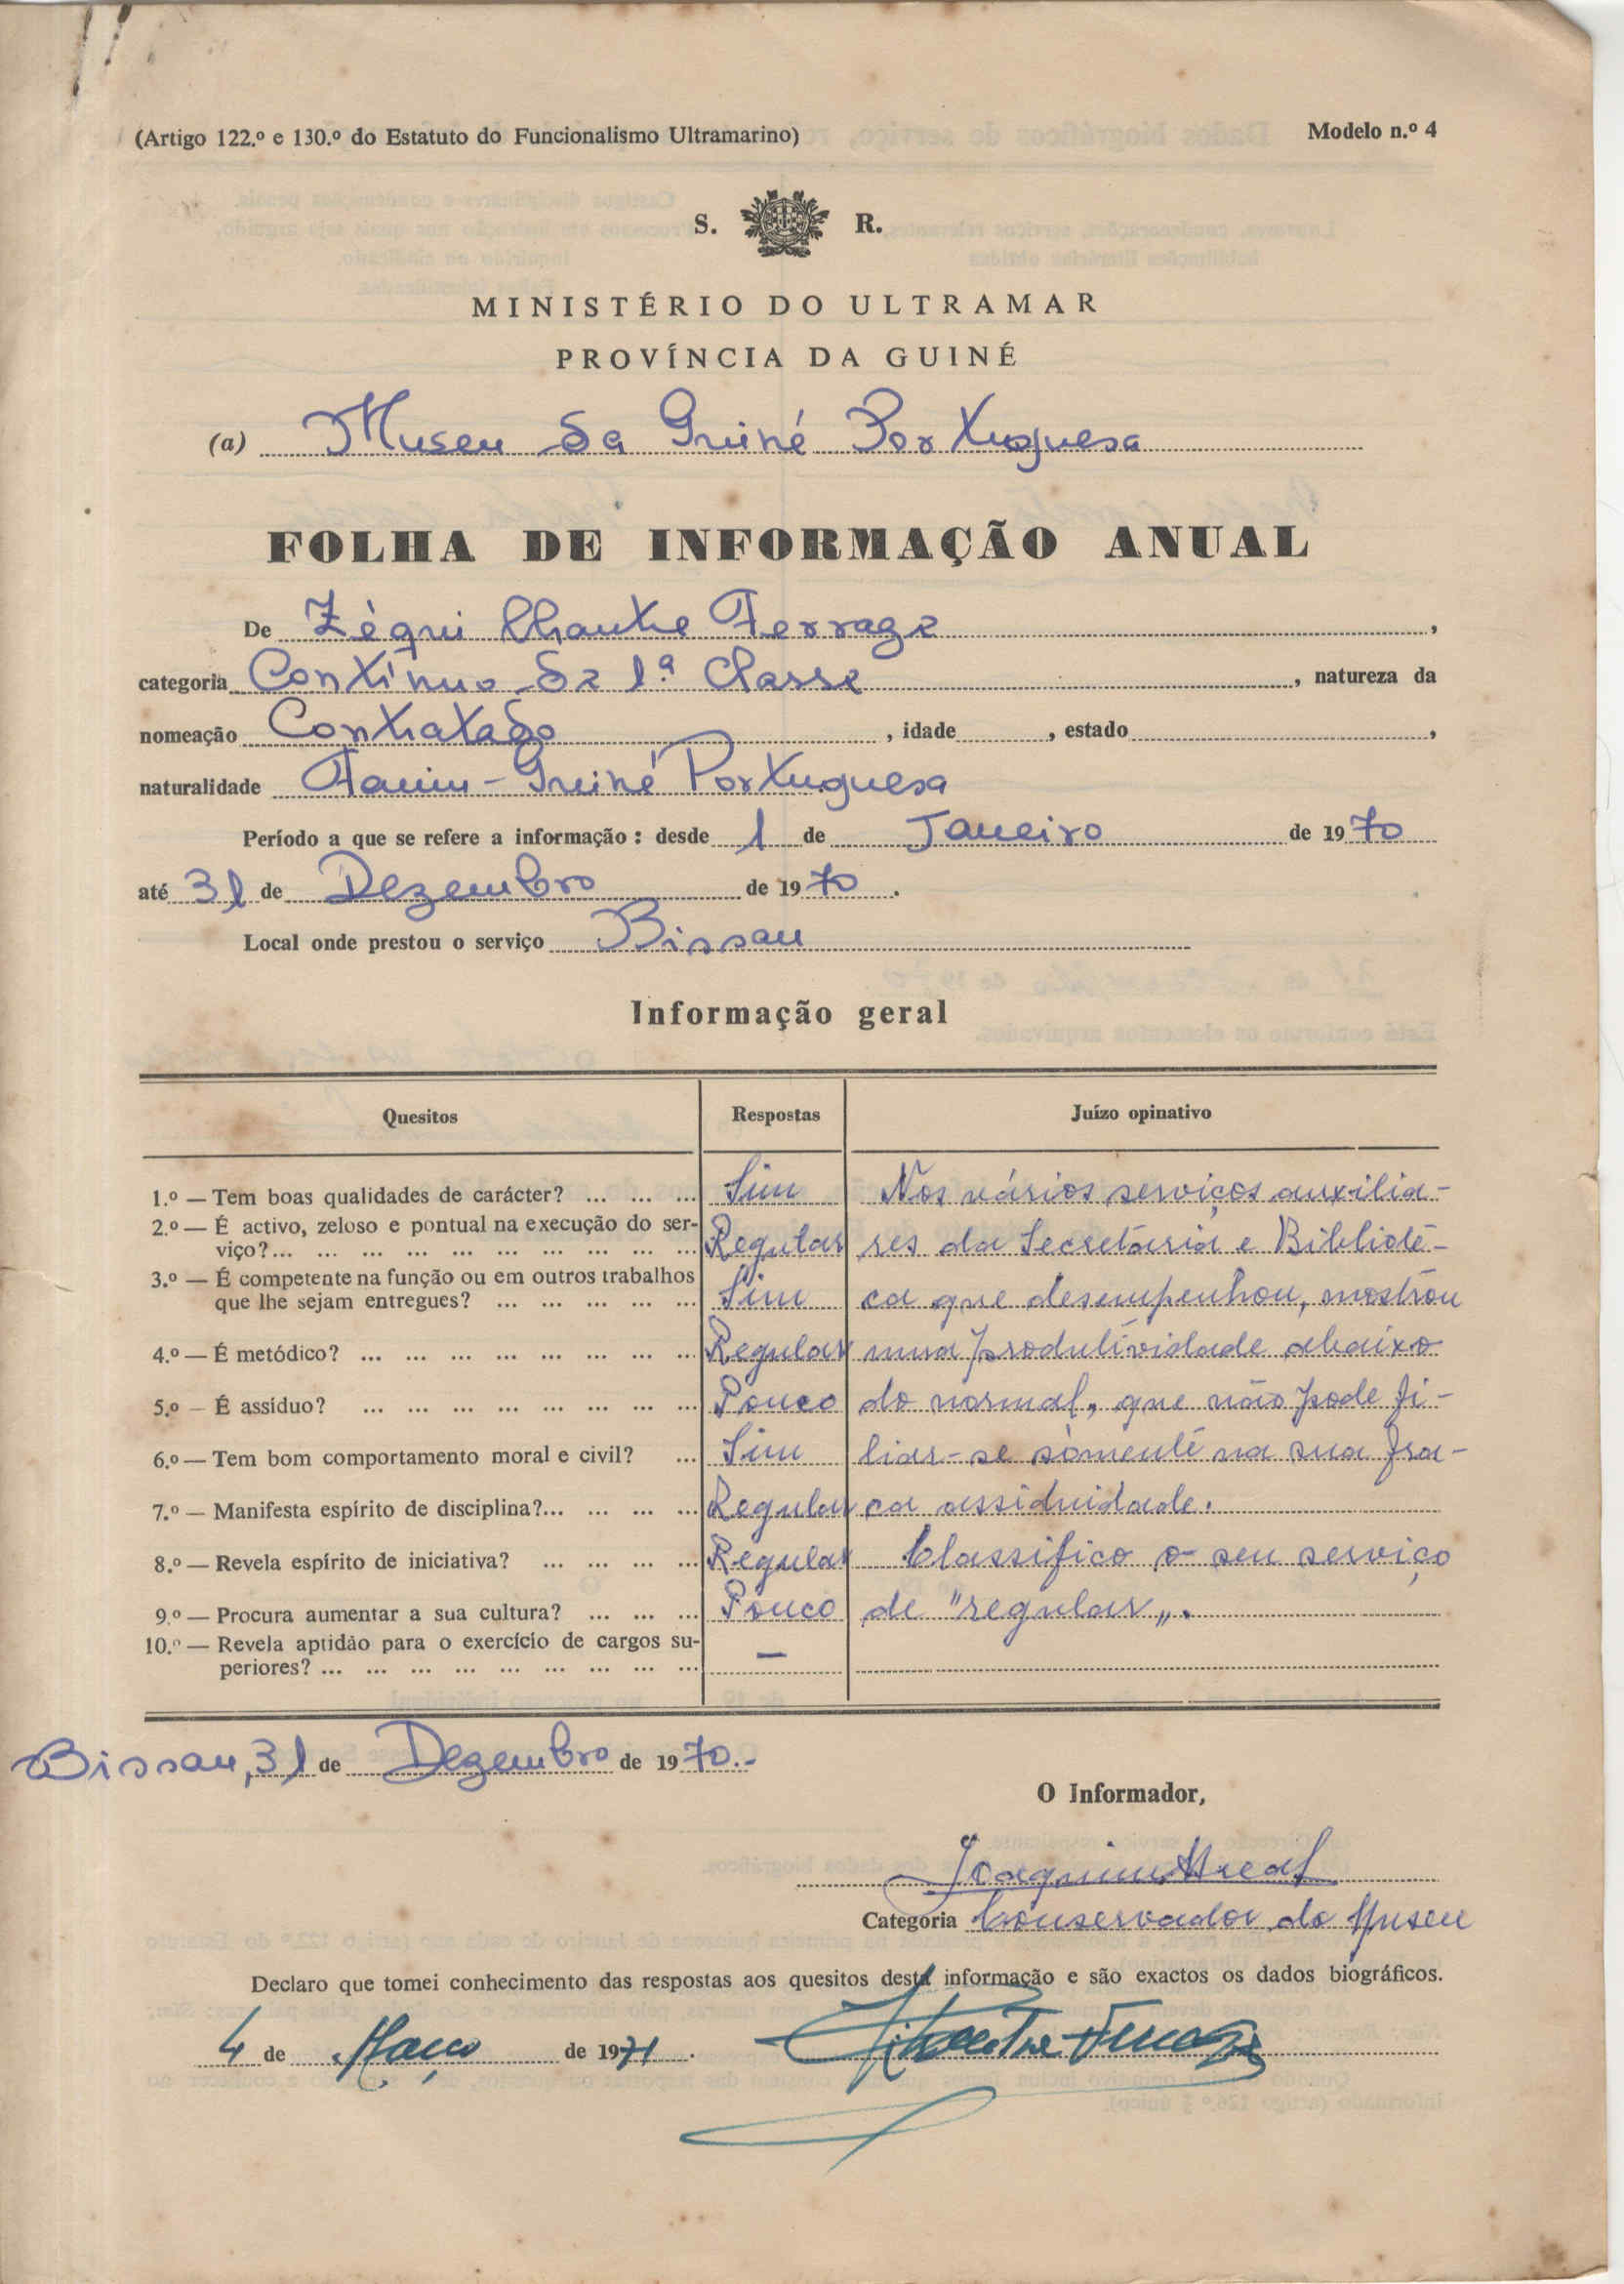 (Artigo 122.º e 130.º do Estatuto do Funcionalismo Ultramarino) Modelo n.º 4
S. R.
MINISTÉRIO DO ULTRAMAR
PROVÍNCIA DA GUINÉ
(a) Museu da Guiné Portuguesa
FOLHA DE INFORMAÇÃO ANUAL
De Zéqui Chantre Ferrage,
categoria Contínuo de 1.ª Classe, natureza da
nomeação Contratado, idade , estado ,
naturalidade Farim - Guiné Portuguesa
Período a que se refere a informação : desde 1 de Janeiro de 1970
até 31 de Dezembro de 1970.
Local onde prestou o serviço Bissau
Informação geral
Quesitos Respostas Juízo opinativo
1.º — Tem boas qualidades de carácter? ... ... ... Sim Nos vários serviços auxilia-
2.º — É activo, zeloso e pontual na execução do ser-
viço?... ... ... ... ... ... ... ... ... ... Regular res da Secretaria e Bibliote-
3.º — É competente na função ou em outros trabalhos
que lhe sejam entregues? ... ... ... ... ... Sim ca que desempenhou, mostrou
4.º — É metódico? ... ... ... ... ... ... ... ... Regular uma produtividade abaixo
5.º — É assíduo? ... ... ... ... ... ... ... ... Pouco do normal, que não pode fi-
6.º — Tem bom comportamento moral e civil? ... Sim liar-se sòmente na sua fra-
7.º — Manifesta espírito de disciplina?... ... ... ... Regular ca assiduidade.
8.º — Revela espírito de iniciativa? ... ... ... ... Regular Classifico o seu serviço
9.º — Procura aumentar a sua cultura? ... ... ... Pouco de "regular".
10.º — Revela aptidão para o exercício de cargos su-
periores? ... ... ... ... ... ... ... ... ... —
Bissau, 31 de Dezembro de 1970.-
O Informador,
Joaquim Areal
Categoria Conservador do Museu
Declaro que tomei conhecimento das respostas aos quesitos desta informação e são exactos os dados biográficos.
4 de Março de 1971.